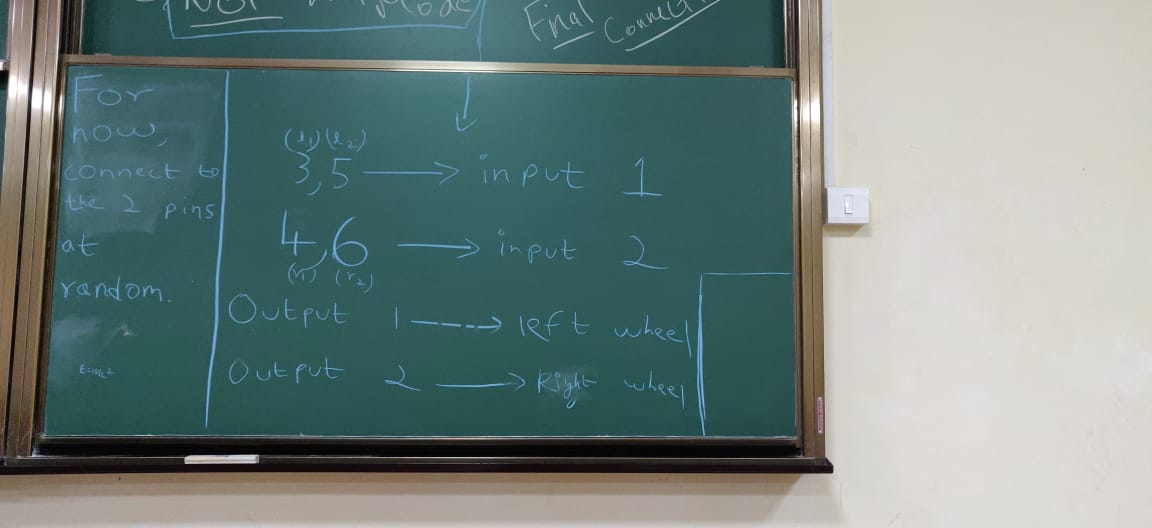 NOT
Mode
Final Connecti
For
now,
connect to
the 2 pins
at
random.
E=mc²
(l₁) (l₂)
3,5 → input 1
4,6 → input 2
(r₁) (r₂)
Output 1 ---→ left wheel
Output 2 → Right wheel